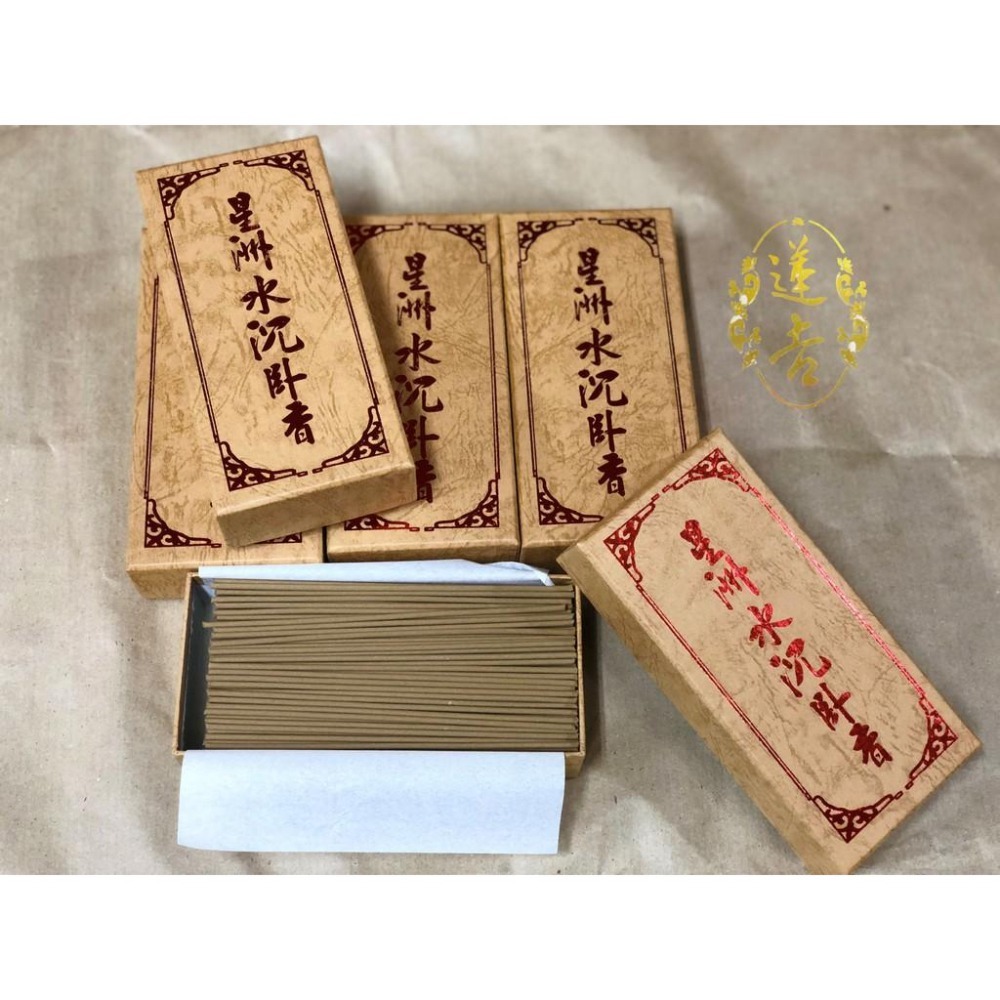 星洲水沉臥香
星洲水沉臥香
星洲水沉臥香
星洲水沉臥香
蓮香